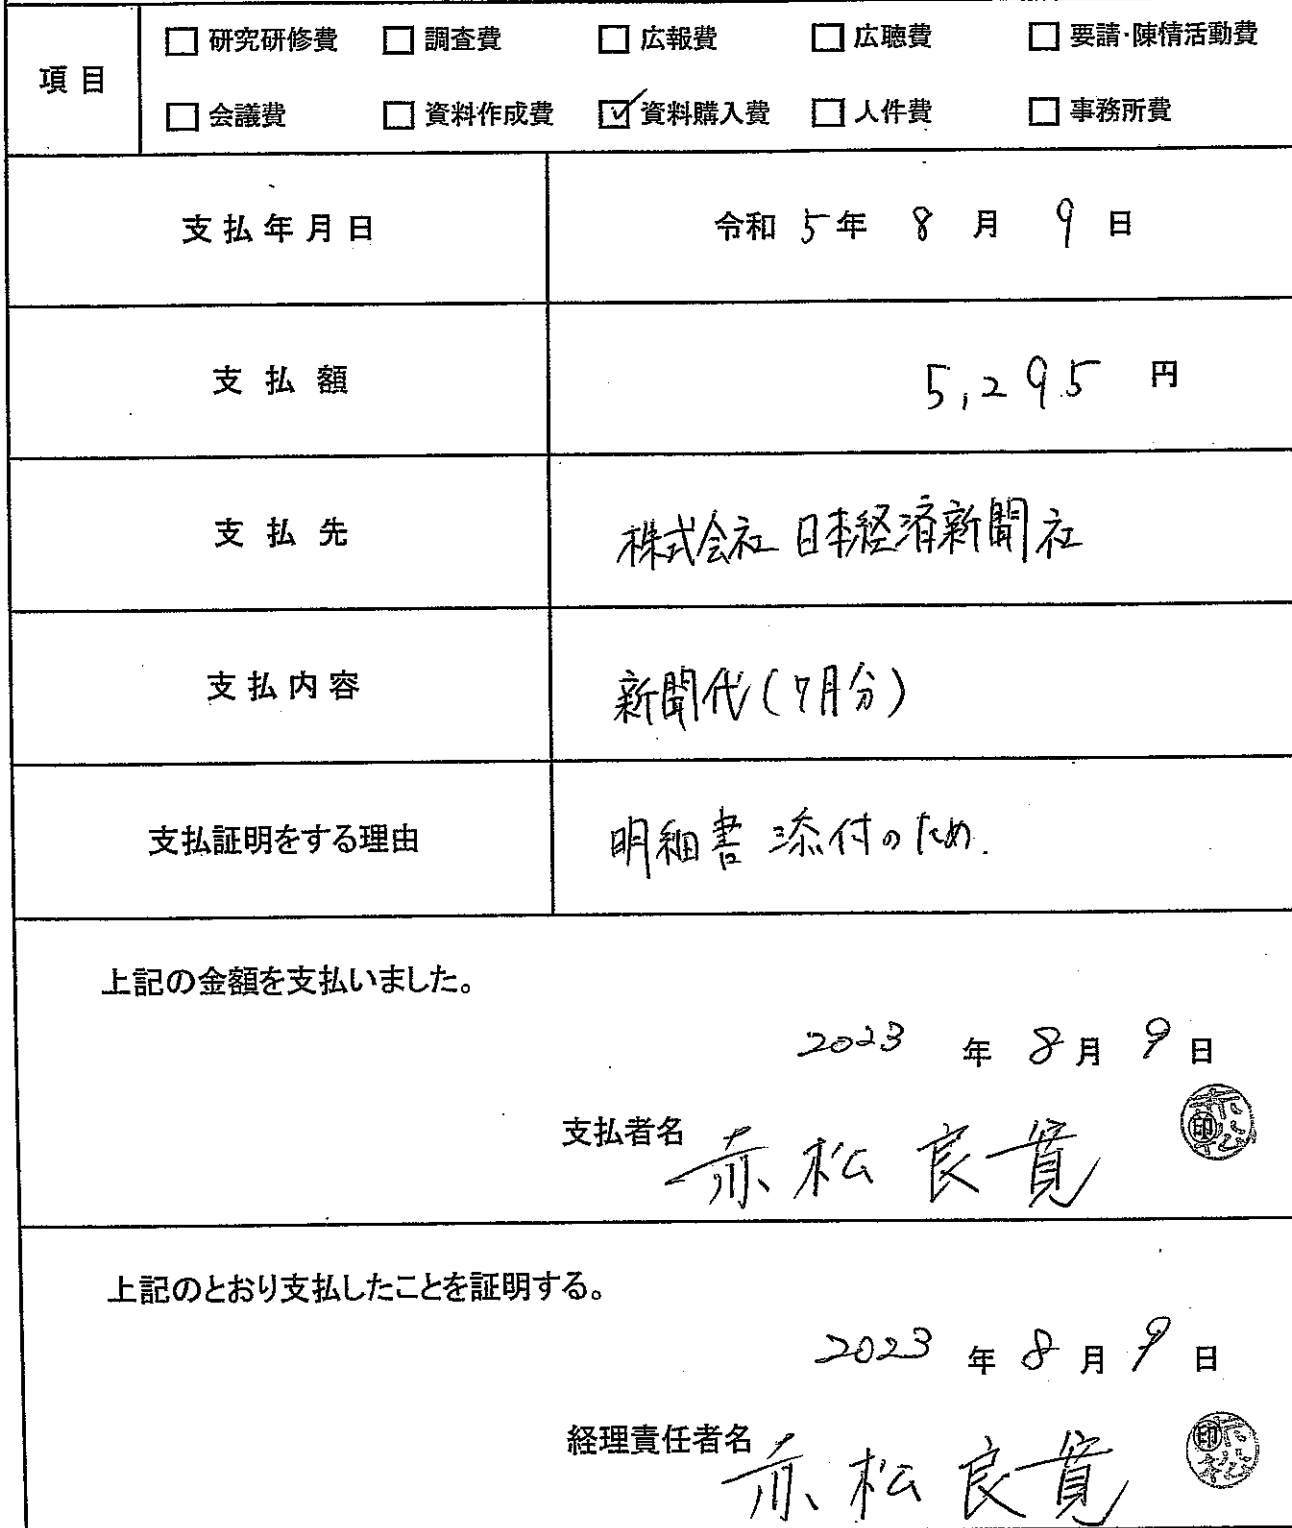 項目
□ 研究研修費 □ 調査費 □ 広報費 □ 広聴費 □ 要請・陳情活動費
□ 会議費 □ 資料作成費 ☑ 資料購入費 □ 人件費 □ 事務所費
支払年月日 令和 5年 8 月 9 日
支払額 5,295 円
支払先 株式会社 日本経済新聞社
支払内容 新聞代(7月分)
支払証明をする理由 明細書 添付のため.
上記の金額を支払いました。
2023 年 8月 9日
支払者名 赤松良寛
赤松
印
上記のとおり支払したことを証明する。
2023 年 8月 9日
経理責任者名 赤松良寛
赤松
印